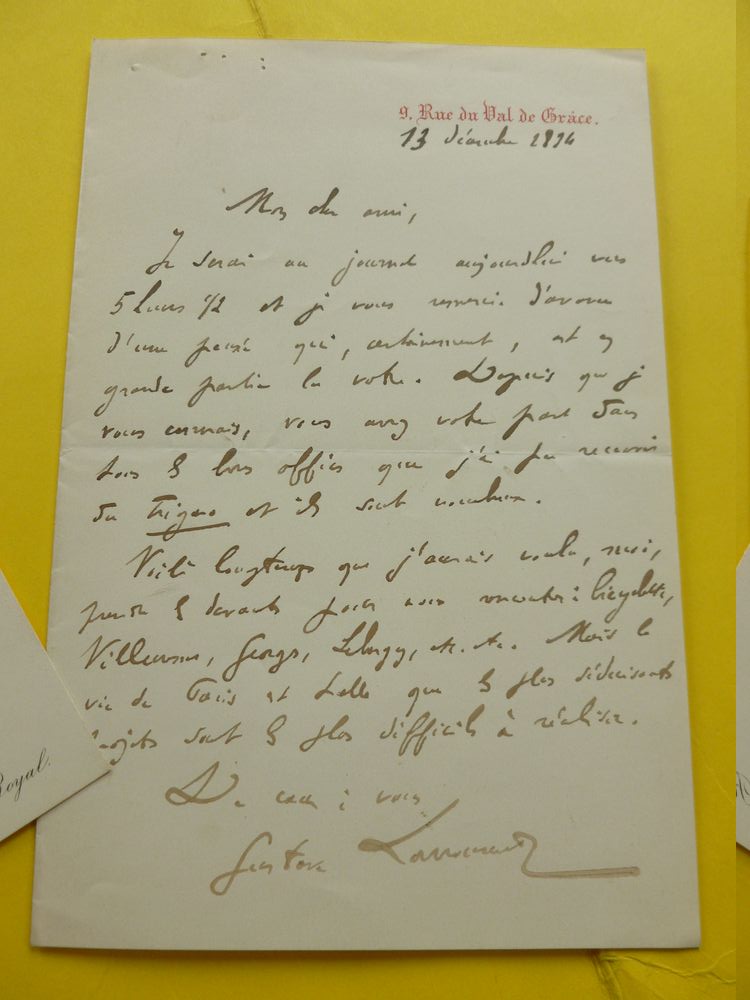 9, Rue du Val de Grâce.
13 décembre 1894
Mon cher ami,
Je serai au journal aujourd'hui vers
5 heures 1/2 et je vous remercie d'avance
d'une pensée qui, certainement, est en
grande partie la vôtre. Depuis que je
vous connais, vous avez votre part dans
tous les bons offices que j'ai pu recevoir
du Figaro et ils sont nombreux.
Voilà longtemps que j'aurais voulu, aussi,
prendre les devants pour nous rencontrer : bicyclette,
Villeneuve, Georges, etc. etc. Mais la
vie de Paris est telle que les plus séduisants
projets sont les plus difficiles à réaliser.
De cœur à vous
Gustave Larroumet
Royal.